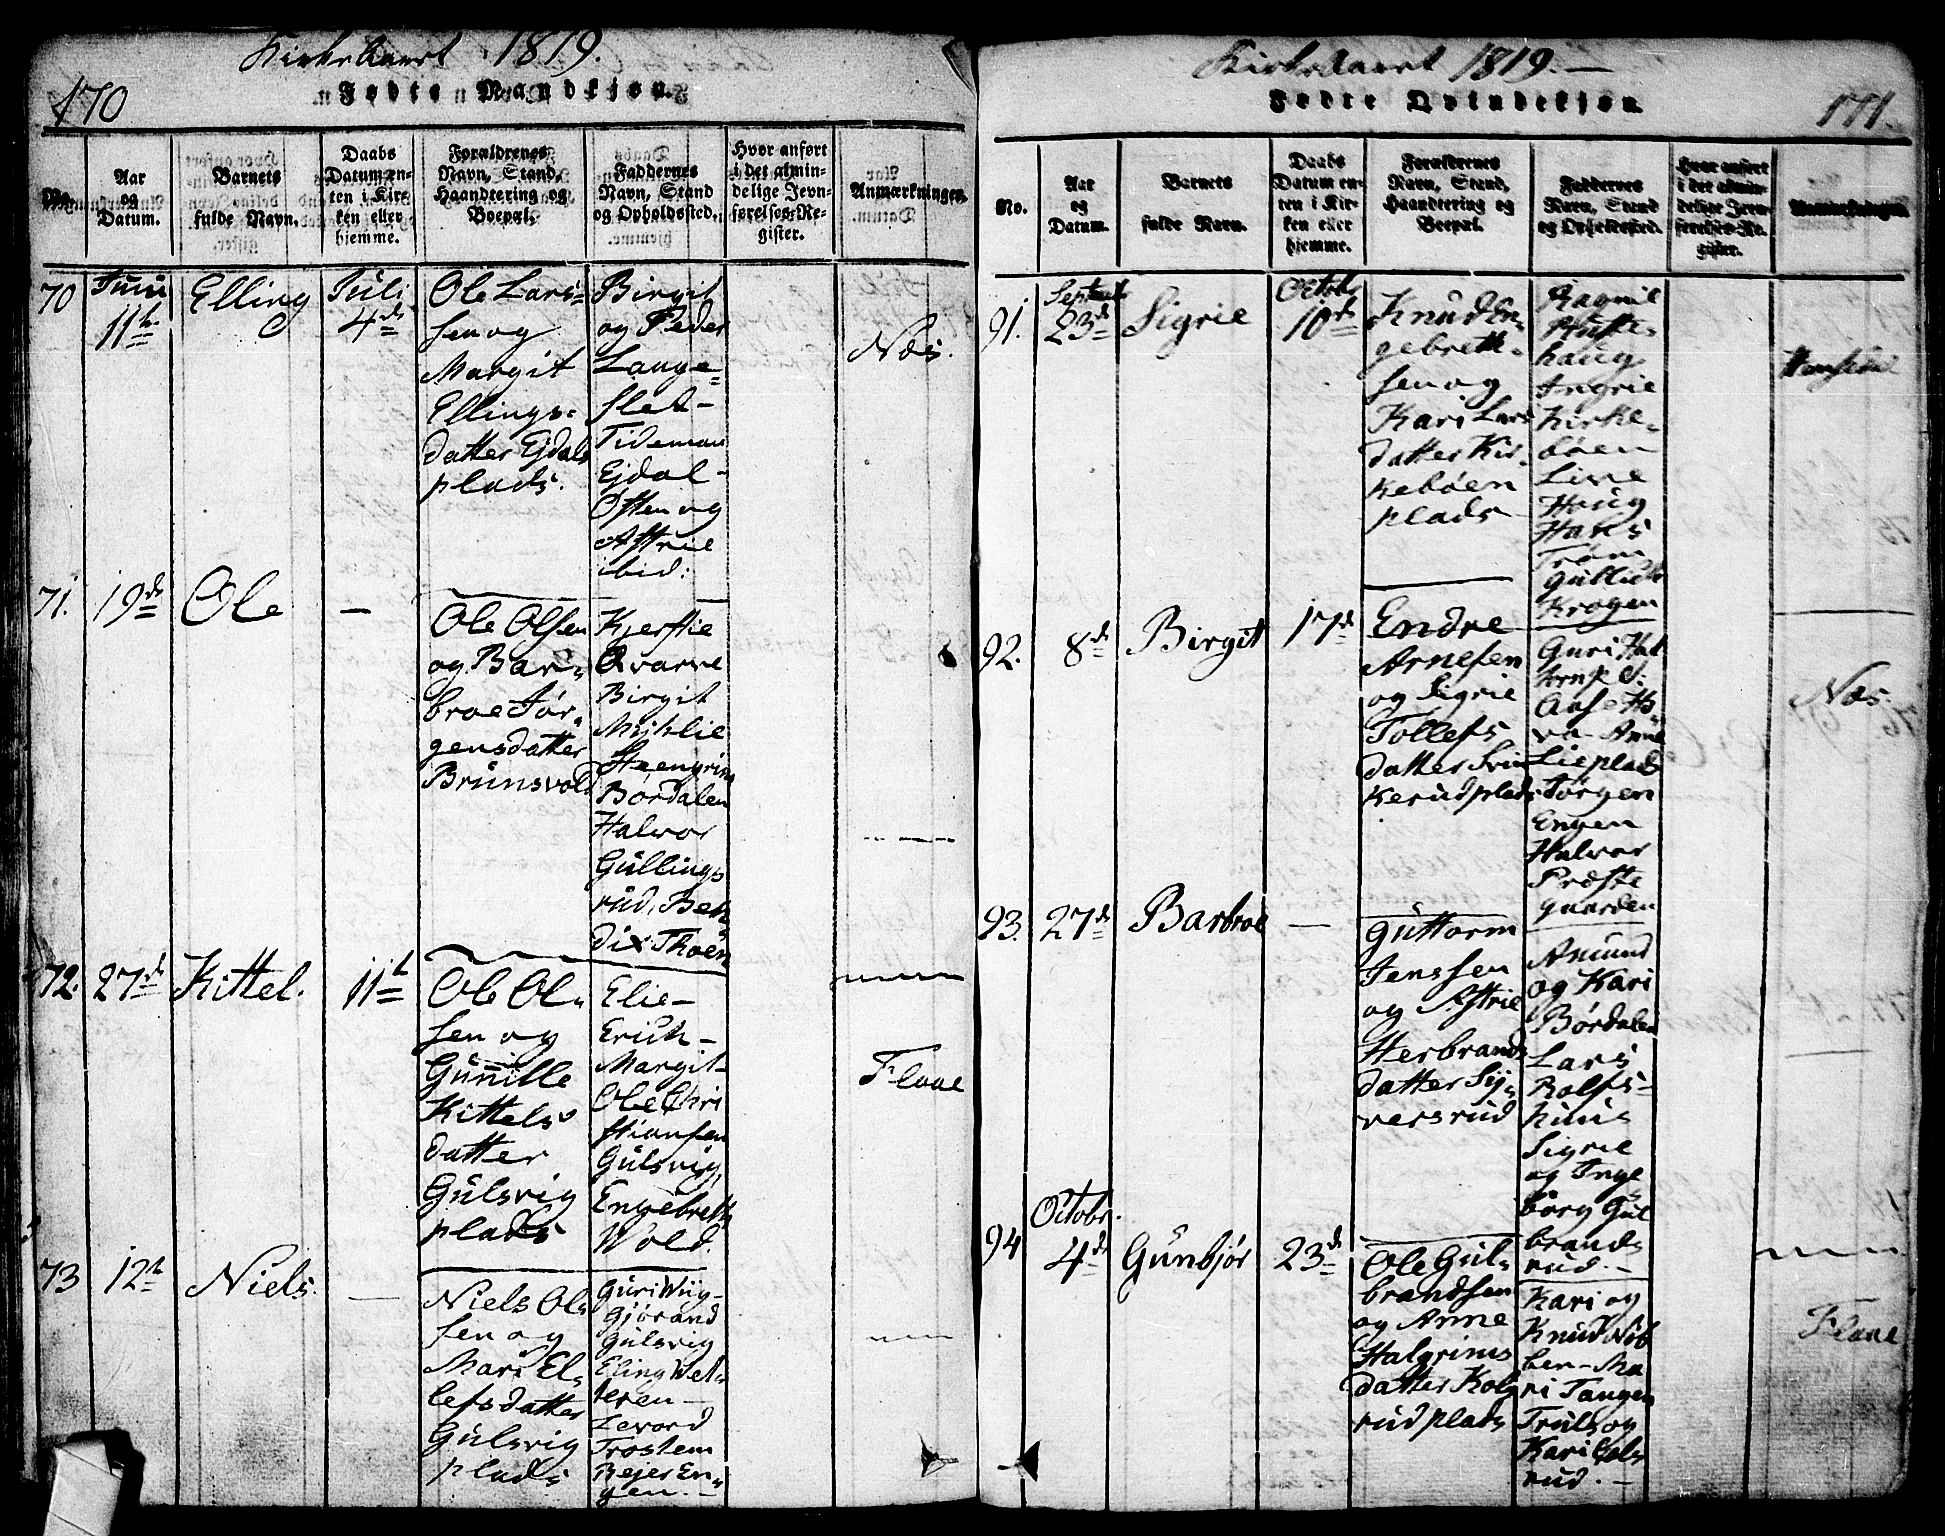 Kirkeaaret 1819.
170
Fødte Mandkjøn.
No.
Aar
og
Datum.
Barnets
fulde Navn.
Daabs
Datum en-
ten i Kir-
ken eller
hjemme.
Forældrenes
Navn, Stand,
Haandtering og
Boepæl.
Faddernes
Navn, Stand
og Opholdssted.
Hvor anført
i det almin-
delige Jevn-
førelses-Re-
gister.
Anmærkninger.
70
Juni
11te
Elling
Juli
4de
Ole Lars-
sen og
Margit
Ellings-
datter Ejdals
plads.
Birgit
og Peder
Lange-
slet-
Tideman
Ejdal-
Østen og
Astrie
ibid:
Næs.
71.
19de
Ole
—
Ole Olsen
og Bar-
broe Jør-
gensdatter
Brunsvold
Kjerstie
Qvarve
Birgit
Myhlie
Steengrim
Børdalen
Halvor
Gullings
rud, Ben
dix Thoen
72.
27de
Kittel.
11te
Ole Ol-
sen og
Gunille
Kittels
datter
Gulsvig
plads
Elie-
Erich-
Margit-
Ole Chri
stiansen
Gulsvig,
Engebreth
Wold.
Flaae
73
12te
Niels.
—
Niels Ol-
sen og
Mari El-
lefsdatter
Gulsvig
plads
Guri Wiig-
Gjørand
Gulsvig
Eling Wet-
teren-
Levord
Trostem
Bejer En-
gen.-
Kirkeaaret 1819.—
171.
Fødte Qvindekjøn
No.
Aar
og
Datum.
Barnets
fulde Navn.
Daabs
Datum en-
ten i Kir-
ken eller
hjemme.
Forældrenes
Navn, Stand,
Haandtering og
Boepæl.
Faddernes
Navn, Stand
og Opholdssted.
Hvor anført
i det almin-
delige Jevn-
førelses-Re-
gister.
Anmærkninger.
91.
Septemb
23de
Sigrie
Octob.
10de
Knud En-
gebrett-
sen og
Kari Lars
datter Kir-
kebøen
plads
Ragnil
haug
Ingrie
Kirke-
bøen
Live
Haug
Hans
Trøm
Gullich
Krogen
92.
8de
Birgit
17de
Endre
Arnesen
og Sigrie
Tollefs
datter
kerudplads
Guri Hal
Anne
Lieplads
Jørgen
Engen
Halvor
Præste
gaarden
Næs.
93.
27de
Barbroe
—
Guttorm
Jenssen
og Astrie
Herbrands
datter Sy-
versrud
Amund
og Kari
Børdalen
Lars
Rolfs-
huus
Sigrie
og Inge
borg Gul
brands
rud.—
94
Octobr.
4de
Gunbjør
23de
Ole Gul-
brandsen
og Anne
Halgrims
datter Kolg
rud plads
Kari og
Knud Nib
ben-Ma
ri Tangen
Truls og
Kari Gols
rud.—
Flaae